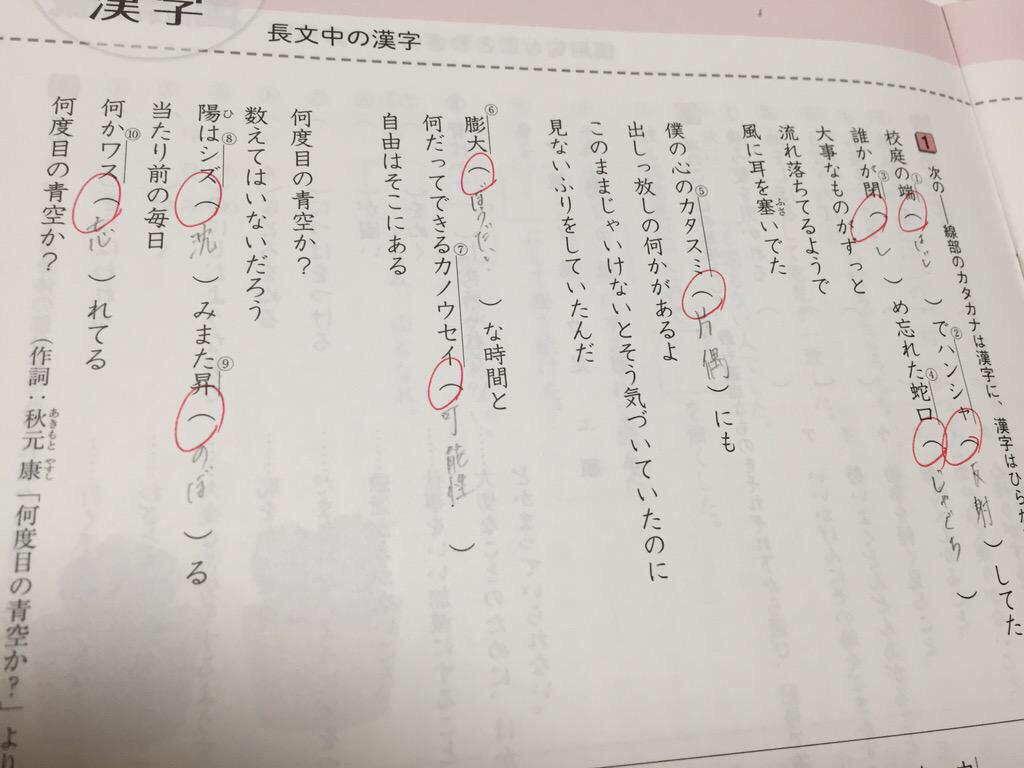 漢字
長文中の漢字
1 次の――線部のカタカナは漢字に、漢字はひらが
校庭の①端（はじ）で②ハンシャ（反射）してた
誰かが③閉（し）め忘れた④蛇口（じゃぐち）
大事なものがずっと
流れ落ちてるようで
風に耳を塞ふさいでた
僕の心の⑤カタスミ（片隅）にも
出しっ放しの何かがあるよ
このままじゃいけないとそう気づいていたのに
見ないふりをしていたんだ
⑥膨大（ぼうだい）な時間と
何だってできる⑦カノウセイ（可能性）
自由はそこにある
何度目の青空か？
数えてはいないだろう
陽ひは⑧シズ（沈）みまた⑨昇（のぼ）る
当たり前の毎日
何か⑩ワス（忘）れてる
何度目の青空か？
（作詞：秋元あきもと 康やすし「何度目の青空か？」より